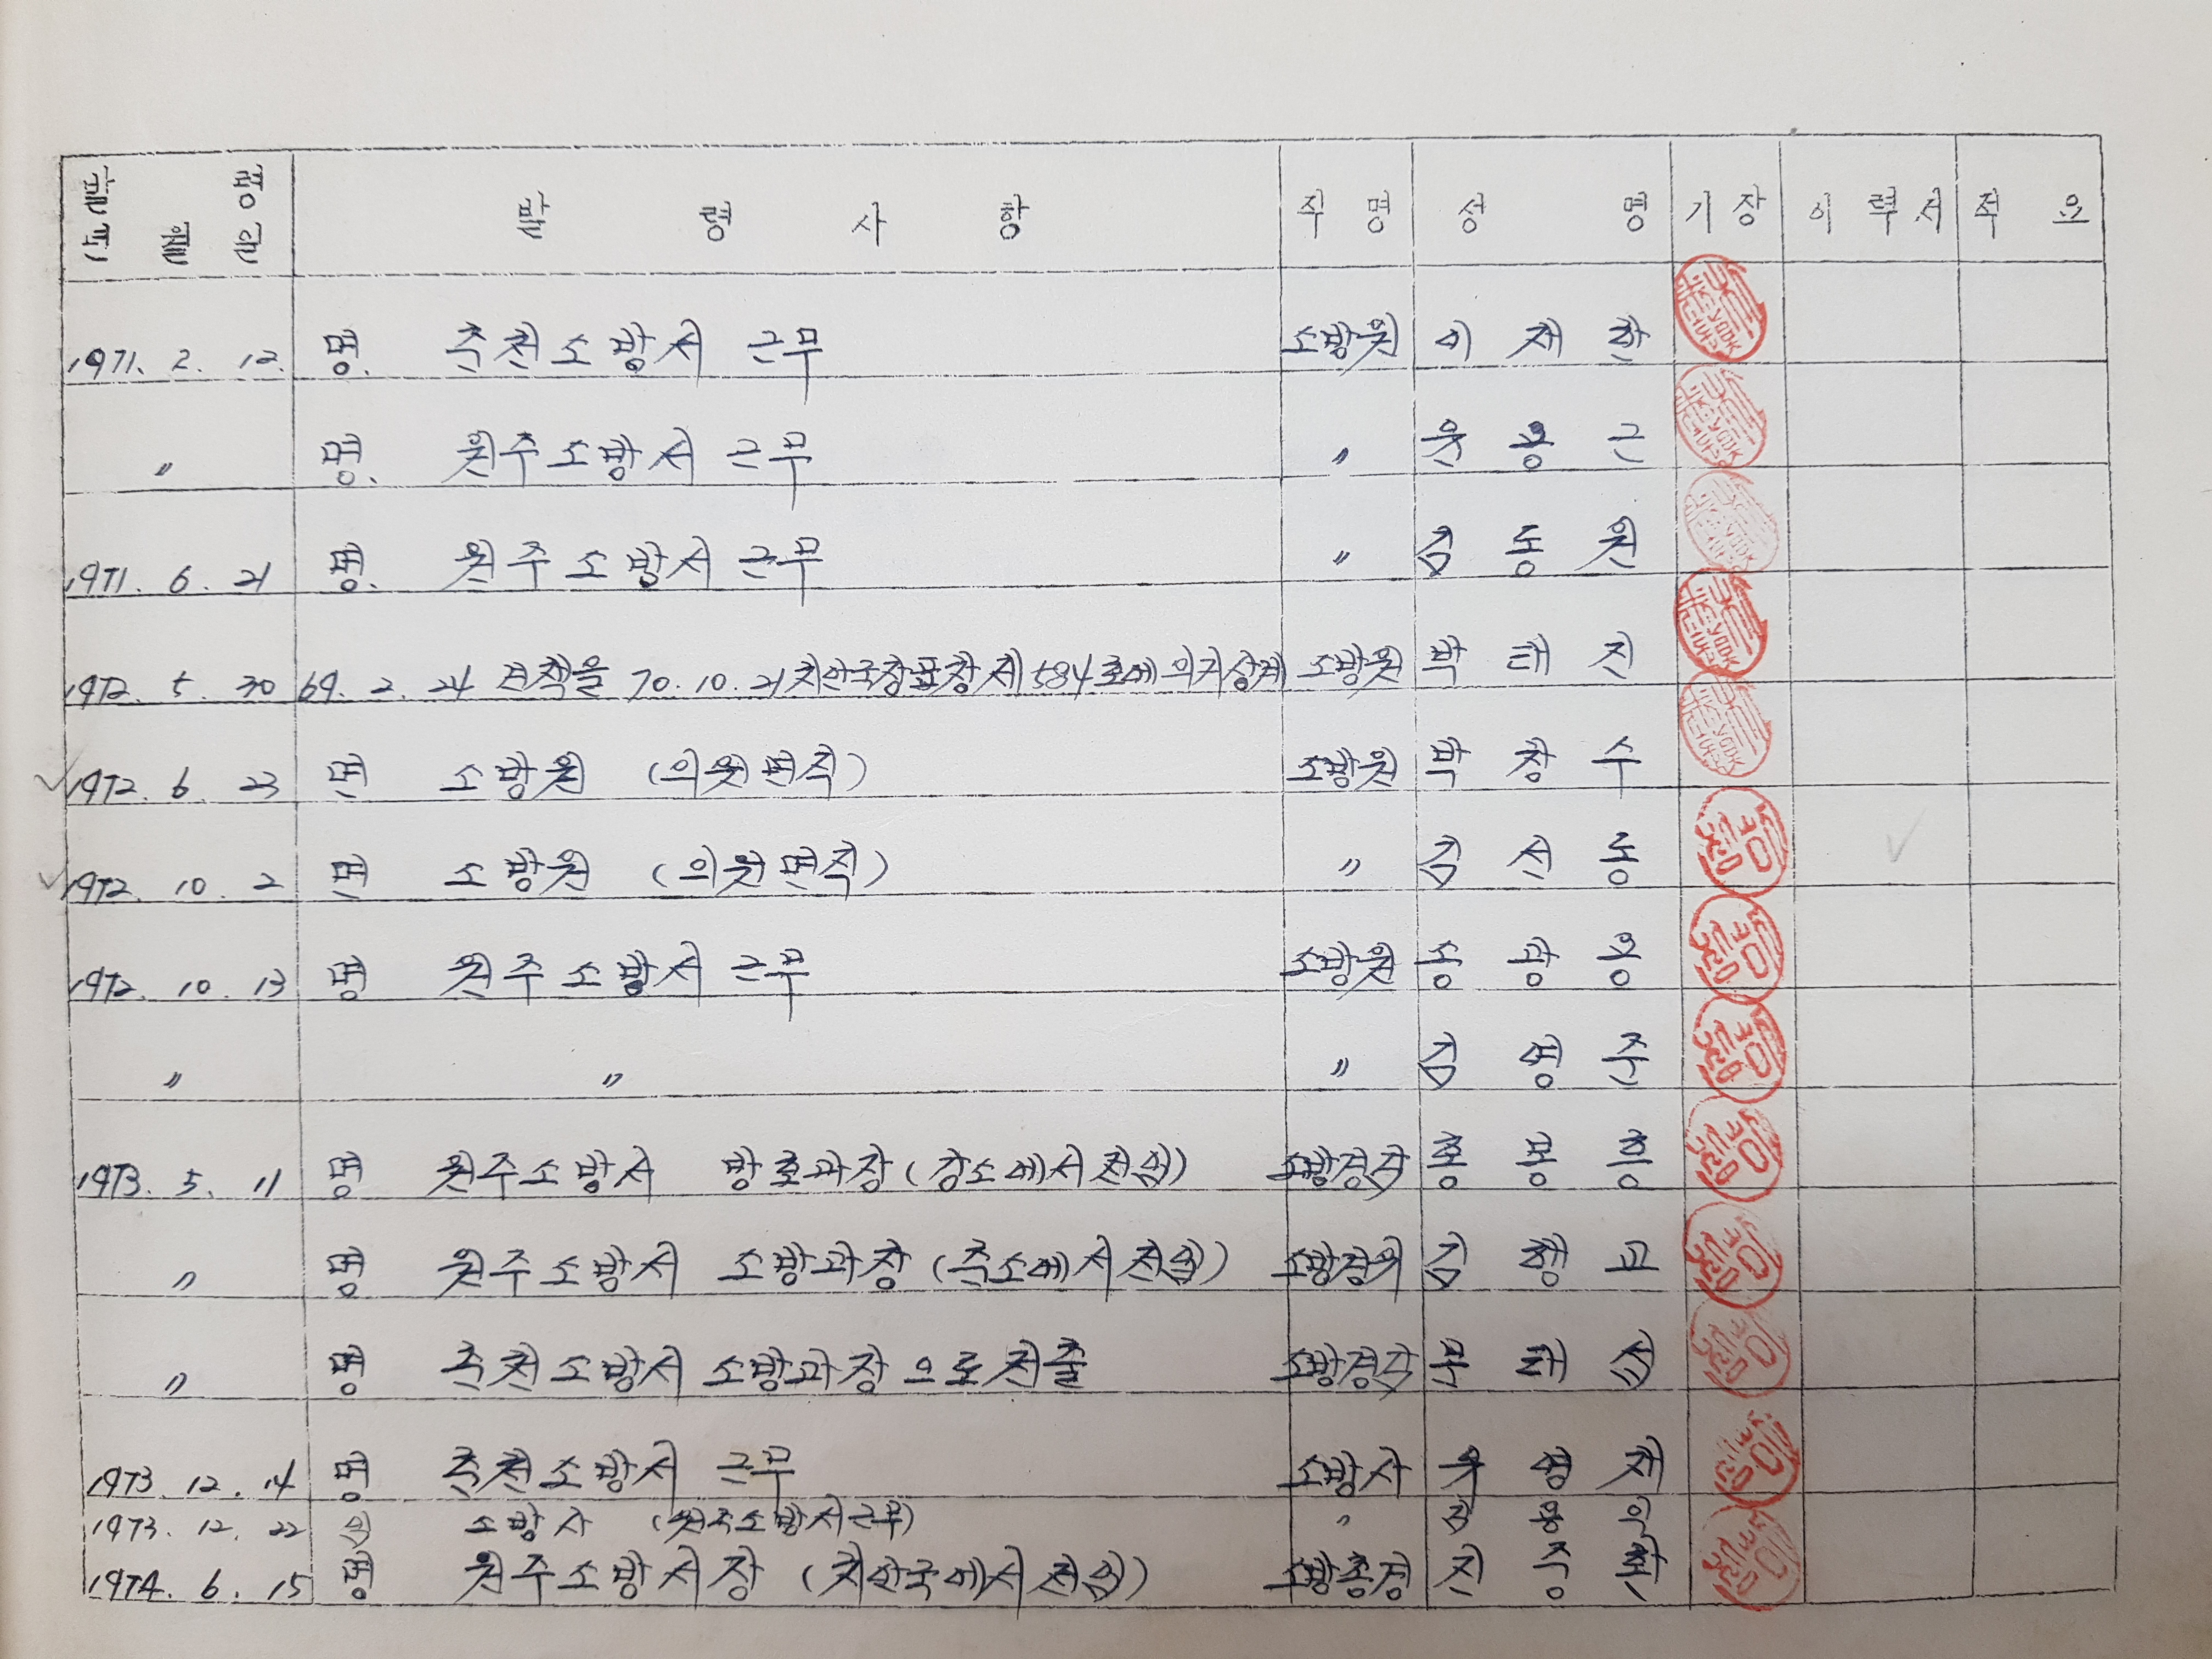 발령 년월일 발령사항 직명 성명 기장 이력서 적요
1971. 2. 12. 명. 춘천소방서 근무 소방원 이재환
〃 명. 원주소방서 근무 〃 윤용근
1971. 6. 21 명. 원주소방서 근무 〃 김동원
1972. 5. 30 69. 2. 24 견책을 70. 10. 21 치안국장표창 제584호에 의거상계 소방원 박태진
1972. 6. 23 면 소방원 (의원면직) 소방원 박창수
1972. 10. 2 면 소방원 (의원면직) 〃 김선동
1972. 10. 13 명 원주소방서 근무 소방원 송광용
〃 〃 〃 김영준
1973. 5. 11 명 원주소방서 방호과장 (강소에서 전입) 소방경감 홍봉흠
〃 명 원주소방서 소방과장 (춘소에서 전입) 소방경위 김형교
〃 명 춘천소방서 소방과장으로 전출 소방경감 태섭
1973. 12. 14 명 춘천소방서 근무 소방사 우영재
1973. 12. 22 소방사 (원주소방서근무) 〃 용익
1974. 6. 15 명 원주소방서장 (치안국에서 전입) 소방총경 진중환